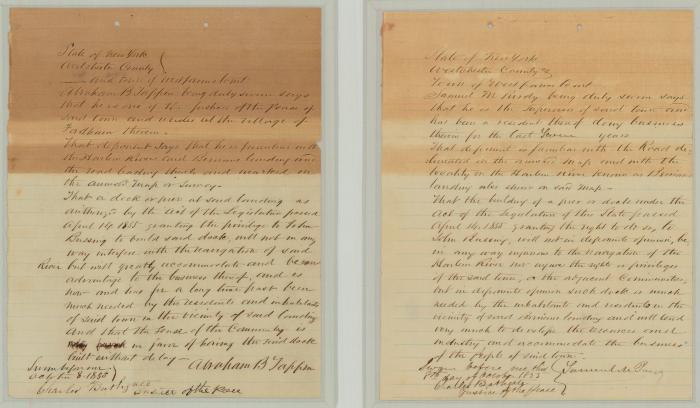 State of New York
Westchester County
and town of Westfarms ss
Abraham B Tappen being duly sworn says
that he is one of the Justices of the Peace of
said town and resides at the village of
Fordham therein.
That deponent says that he is familiar with
the Harlem River and Berrians landing and
the road leading thereto and marked on
the annexed map or survey.
That a dock or pier at said landing as
authorized by the act of the Legislature passed
April 14 1855 granting the privilege to John
Bussing to build said dock, will not in any
way interfere with the navigation of said
River but will greatly accommodate and be an
advantage to the business thereof, and is
now and has for a long time past been
much needed by the residents and inhabitants
of said town in the vicinity of said landing
And that the sense of the Community is
in favor of having the said dock
built without delay
Abraham B Tappen
Sworn before me
October 8 1855
Charles
Justice of the Peace
State of New York
Westchester County
Town of West farms ss
Samuel M Purdy being duly sworn says
that he is the Supervisor of said town and
has been a resident thereof doing business
therein for the last Seven years
That deponent is familiar with the Road de-
lineated in the annexed map and with the
locality on the Harlem River known as Berrians
landing also shown on said map -
That the building of a pier or dock under the
Act of the Legislature of this State passed
April 14 1855 granting the right to do so, to
John Bussing, will not in deponents opinion, be
in any way injurious to the navigation of the
Harlem River nor injure the rights or privileges
of the said town, or the adjacent Communities,
but in deponents opinion such dock is much
needed by the inhabitants and residents in the
vicinity of said Berrians landing and will tend
very much to develope the resources and
industry and accommodate the business
of the people of said town.
Sworn before me this
8th day of October 1855
Charles
Justice of the Peace
Samuel M Purdy